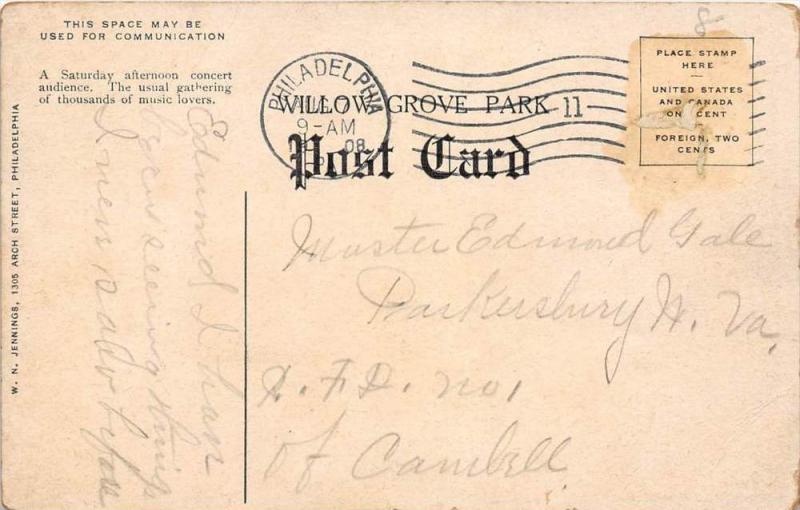 THIS SPACE MAY BE
USED FOR COMMUNICATION
A Saturday afternoon concert
audience. The usual gathering
of thousands of music lovers.
W. N. JENNINGS, 1305 ARCH STREET, PHILADELPHIA
PHILADELPHIA
9-AM
08
WILLOW GROVE PARK 11
Post Card
PLACE STAMP
HERE
UNITED STATES
AND CANADA
ONE CENT
FOREIGN, TWO
CENTS
Master Edmond Gale
Parkersburg W. Va,
R. F. D. no 1
of Cambell
Edmond I have
been seeing things
I never saw before